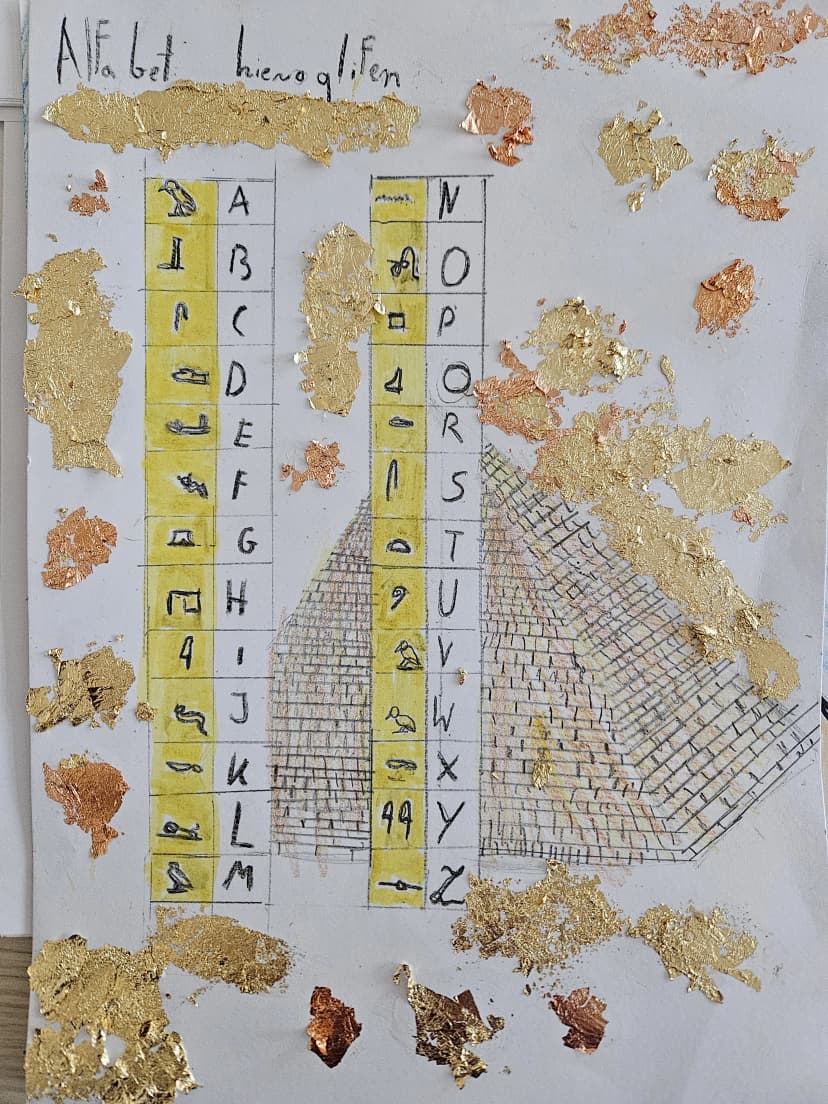 Alfabet hieroglifen
A
B
C
D
E
F
G
H
I
J
K
L
M
N
O
P
Q
R
S
T
U
V
W
X
Y
Z